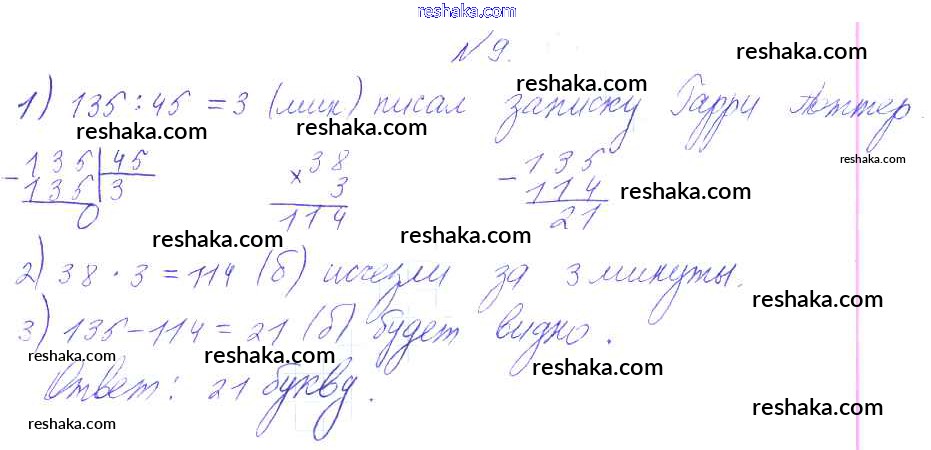 reshaka.com
№ 9.
reshaka.com
reshaka.com
reshaka.com
1) 135 : 45 = 3 (мин) писал записку Гарри Поттер.
reshaka.com
reshaka.com
reshaka.com
- 135 | 45
135 | 3
0
× 38
3
114
- 135
114
21
reshaka.com
reshaka.com
reshaka.com
2) 38 · 3 = 114 (б) исчезли за 3 минуты.
reshaka.com
3) 135 - 114 = 21 (б) будет видно.
reshaka.com
reshaka.com
reshaka.com
Ответ: 21 букву.
reshaka.com
reshaka.com